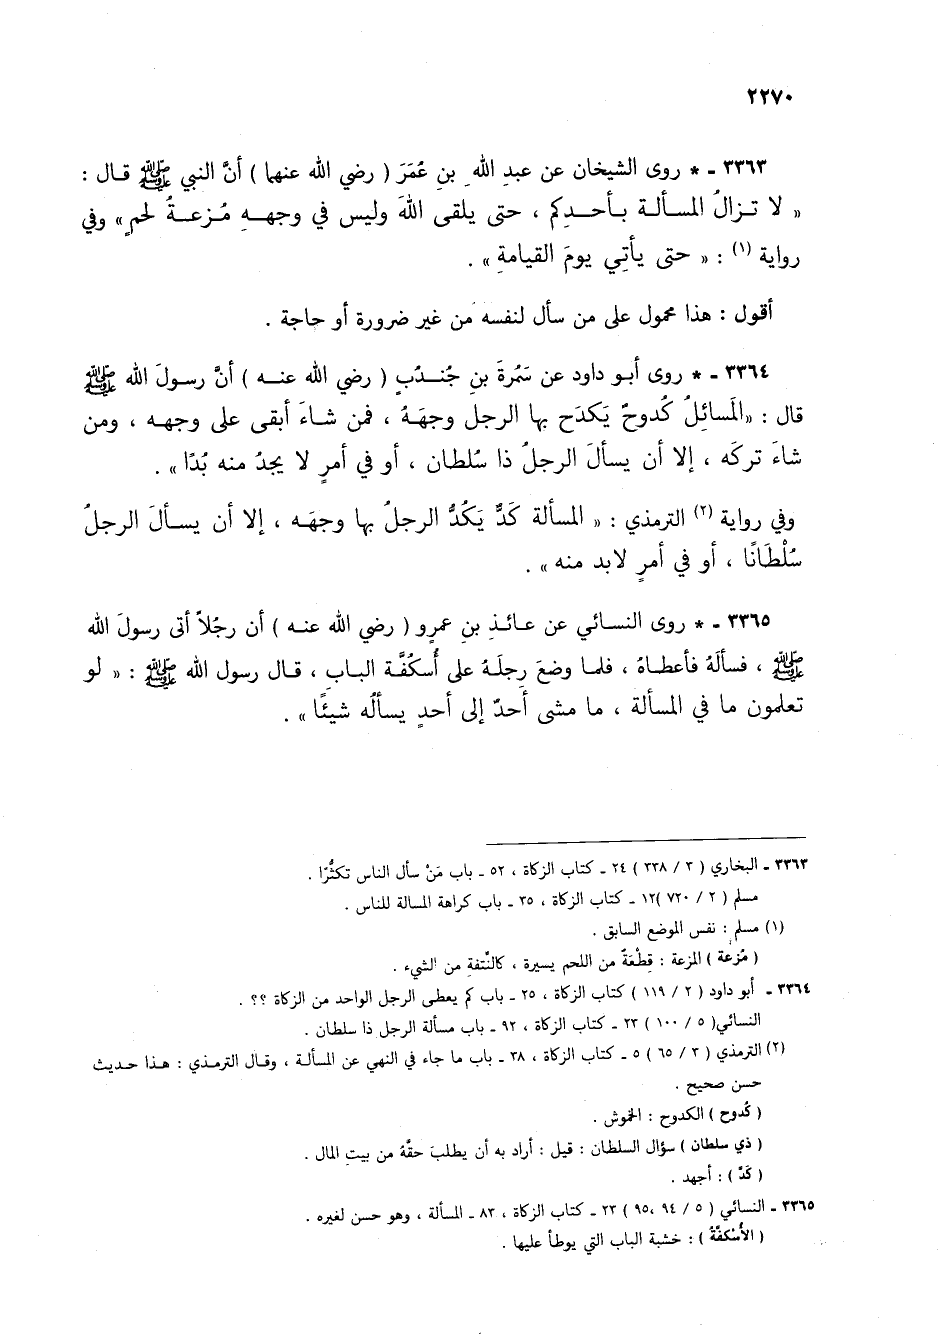 ٢٢٧٠
٣٣٦٣ ـ * روى الشيخان عن عبدِ اللهِ بنِ عُمَرَ ( رضي الله عنهما ) أنَّ النبي ﷺ قـال :
« لا تـزالُ المسألـة بـأحـدِكم ، حتى يلقى اللهَ وليس في وجهـهِ مُـزعـةُ لحمٍ » وفي
رواية (١) : « حتى يأتي يومَ القيامةِ » .
أقول : هذا محمول على من سأل لنفسه من غير ضرورة أو حاجة .
٣٣٦٤ ـ * روى أبـو داود عن سَمُرةَ بنِ جُنـدُبٍ ( رضي الله عنـه ) أنَّ رسـولَ الله ﷺ
قال : «المَسائِلُ كُدوحٌ يَكدَح بها الرجل وجهَهُ ، فمن شـاءَ أبقى على وجهـه ، ومن
شاءَ تركَه ، إلا أن يسألَ الرجلُ ذا سُلطان ، أو في أمرٍ لا يجدُ منه بُدًا » .
وفي رواية (٢) الترمذي : « المسألة كَدٌّ يَكُدُّ الرجلُ بها وجهَـه ، إلا أن يسـألَ الرجلُ
سُلْطَانًا ، أو في أمرٍ لابد منه » .
٣٣٦٥ ـ * روى النسـائي عن عـائـذِ بنِ عمرٍو ( رضي الله عنـه ) أن رجُلاً أتى رسولَ الله
ﷺ ، فسألَهُ فأعطـاهُ ، فلمـا وضعَ رِجلَـهُ على أُسكُفَّـة البـابِ ، قـال رسول الله ﷺ : « لو
تعلمون ما في المسألة ، ما مشى أحدٌ إلى أحدٍ يسألُه شيئًا » .
٣٣٦٣ ـ البخاري ( ٣ / ٣٣٨ ) ٢٤ ـ كتاب الزكاة ، ٥٢ ـ باب مَنْ سأل الناس تكثُّرًا .
مسلم ( ٢ / ٧٢٠ )١٢ ـ كتاب الزكاة ، ٣٥ ـ باب كراهة المسالة للناس .
(١) مسلم : نفس الموضع السابق .
( مُزعة ) المزعة : قِطْعَةٌ من اللحم يسيرة ، كالنُّتفةِ من الشيء .
٣٣٦٤ ـ أبو داود ( ٢ / ١١٩ ) كتاب الزكاة ، ٢٥ ـ باب كم يعطى الرجل الواحد من الزكاة ؟؟ .
النسائي( ٥ / ١٠٠ ) ٢٣ ـ كتاب الزكاة ، ٩٢ ـ باب مسألة الرجل ذا سلطان .
(٢) الترمذي ( ٣ / ٦٥ ) ٥ ـ كتاب الزكاة ، ٣٨ ـ باب ما جاء في النهي عن المسألـة ، وقـال الترمـذي : هـذا حـديث
حسن صحيح .
( كُدوح ) الكدوح : الخموش .
( ذي سلطان ) سؤال السلطان : قيل : أراد به أن يطلبَ حقَّهُ من بيتِ المال .
( كَدَّ ) : أجهد .
٣٣٦٥ ـ النسائي ( ٥ / ٩٤ ،٩٥ ) ٢٣ ـ كتاب الزكاة ، ٨٣ ـ المسألة ، وهو حسن لغيره .
( الأُسْكفَّةُ ) : خشبة الباب التي يوطأ عليها .